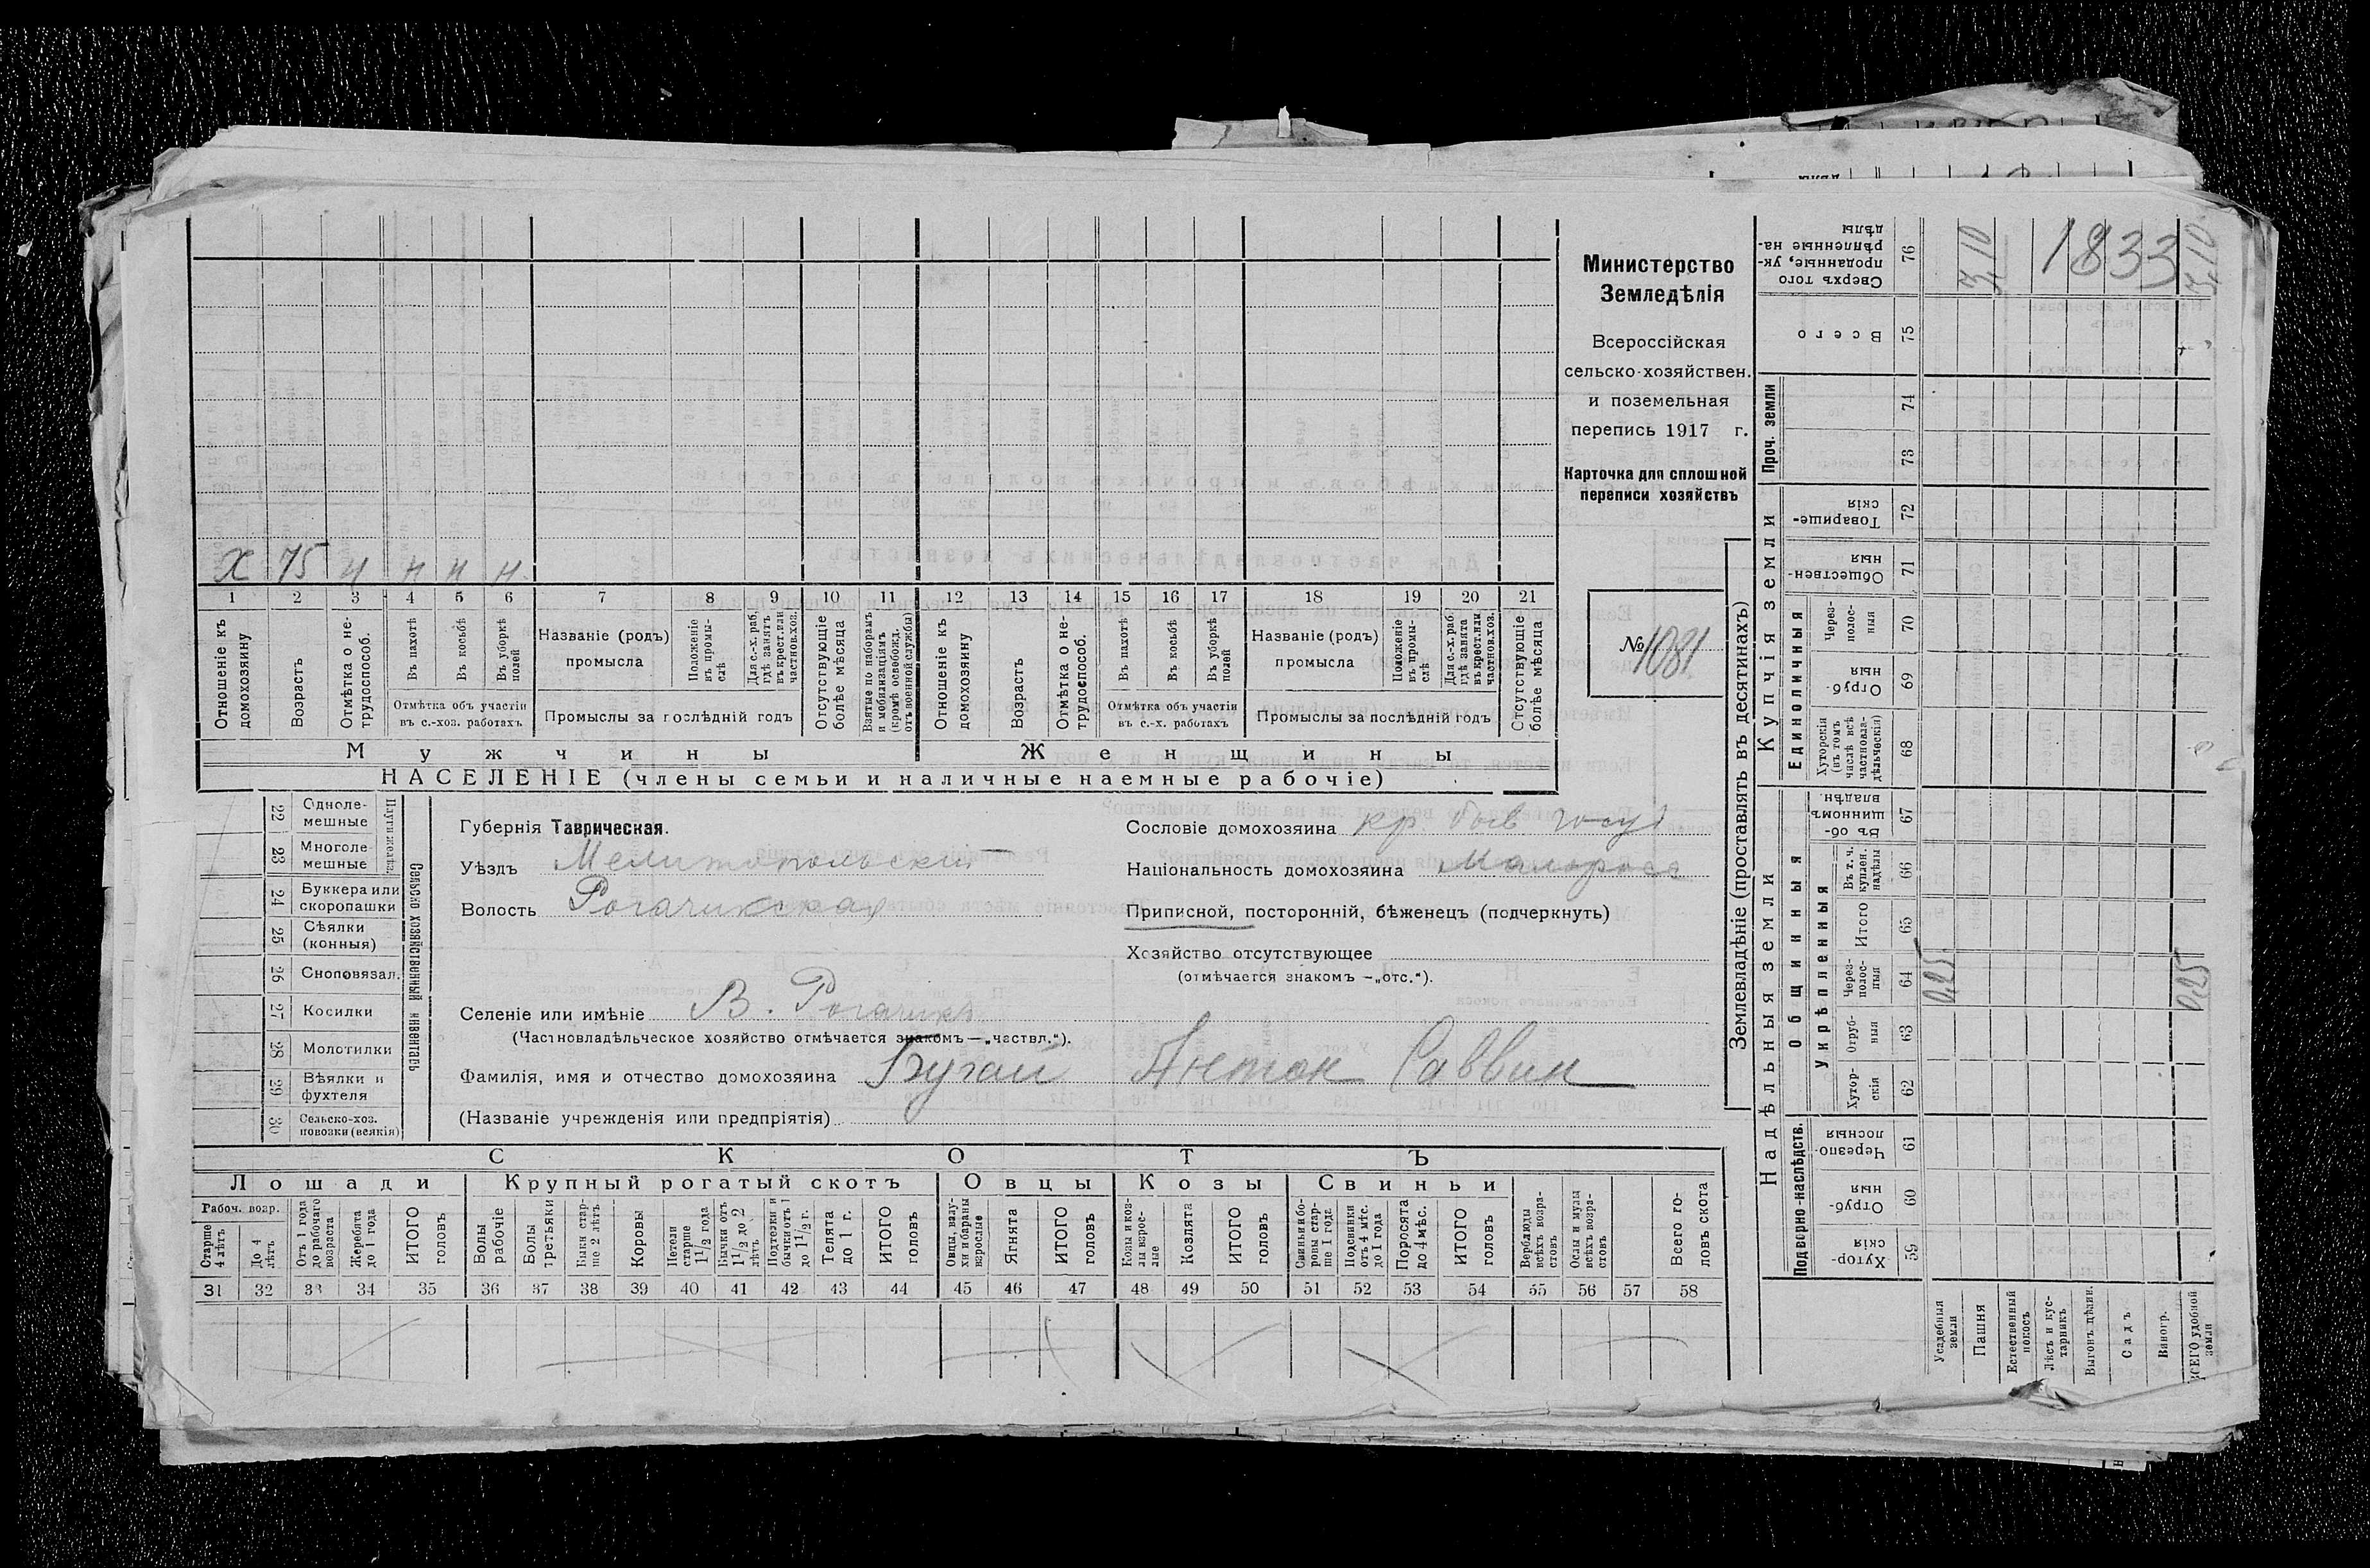 Министерство
Земледѣлія
Всероссійская
сельско-хозяйствен.
и поземельная
перепись 1917 г.
Карточка для сплошной
переписи хозяйствъ
№ 1081
Х 75 н н н н
1 2 3 4 5 6 7 8 9 10 11 12 13 14 15 16 17 18 19 20 21
Отношеніе къ домохозяину
Возрастъ
Отмѣтка о не-трудоспособ.
Въ пахотѣ
Въ косьбѣ
Въ уборкѣ полей
Отмѣтка объ участіи
въ с.-хоз. работахъ
Названіе (родъ)
промысла
Положеніе въ промы-слѣ
Для с.-х. раб. гдѣ занятъ въ крест. или частнов. хоз.
Промыслы за послѣдній годъ
Отсутствующіе болѣе мѣсяца
Взятые по наборамъ и мобилизаціямъ (кромѣ освобожд. отъ военной службы)
Отношеніе къ домохозяину
Возрастъ
Отмѣтка о не-трудоспособ.
Въ пахотѣ
Въ косьбѣ
Въ уборкѣ полей
Отмѣтка объ участіи
въ с.-х. работахъ
Названіе (родъ)
промысла
Положеніе въ промы-слѣ
Для с.-х. раб. гдѣ занята въ крест. или частнов. хоз.
Промыслы за послѣдній годъ
Отсутствующіе болѣе мѣсяца
Мужчины Женщины
НАСЕЛЕНІЕ (члены семьи и наличные наемные рабочіе)
Сельско хозяйственный инвентарь
22 Одноле-мешные
23 Многоле-мешные
24 Буккера или скоропашки
25 Сѣялки (конныя)
26 Сноповязал.
27 Косилки
28 Молотилки
29 Вѣялки и фухтеля
30 Сельско-хоз. повозки (всякія)
Губернія Таврическая.
Уѣздъ Мелитопольскій
Волость Рогачикская
Селеніе или имѣніе В. Рогачикъ
(Частновладѣльческое хозяйство отмѣчается знакомъ—„частвл.“).
Фамилія, имя и отчество домохозяина Бугай Антон Саввин
(Названіе учрежденія или предпріятія)
Сословіе домохозяина кр. быв госуд
Національность домохозяина Малоросс
Приписной, посторонній, бѣженецъ (подчеркнуть)
Хозяйство отсутствующее
(отмѣчается знакомъ —„отс.“).
СКОТЪ
Лошади Крупный рогатый скотъ Овцы Козы Свиньи
Рабоч. возр.
Старше 4 лѣтъ
До 4 лѣтъ
Отъ 1 года до рабочаго возраста
Жеребята до 1 года
ИТОГО головъ
Волы рабочіе
Волы третьяки
Быки стар-ше 2 лѣтъ
Коровы
Нетели старше 1 1/2 года
Бычки отъ 1 1/2 до 2 лѣтъ
Подтелки и бычки отъ 1 до 1 1/2 г.
Телята до 1 г.
ИТОГО головъ
Овцы, валу-хи и бараны взрослые
Ягнята
ИТОГО головъ
Козы и коз-лы взрос-лые
Козлята
ИТОГО головъ
Свиньи и бо-ровы стар-ше 1 года
Подсвинки отъ 4 мѣс. до 1 года
Поросята до 4 мѣс.
ИТОГО головъ
Верблюды всѣхъ возра-стовъ
Ослы и мулы всѣхъ возра-стовъ
Всего го-ловъ скота
31 32 33 34 35 36 37 38 39 40 41 42 43 44 45 46 47 48 49 50 51 52 53 54 55 56 57 58
Землевладѣніе (проставлять въ десятинахъ)
Надѣльныя земли Купчія земли Проч. земли
Подворно-наслѣдств. Общинныя Единоличныя
Укрѣпленныя
Хутор-скія 59
Отруб-ныя 60
Черезпо-лосныя 61
Хутор-скія 62
Отруб-ныя 63
Через-полос-ныя 64
Итого 65
Въ т. ч. куплен. надѣлы 66
Въ об-щинномъ владѣн. 67
Хуторскія (въ томъ числѣ всѣ частновла-дѣльческія) 68
Отруб-ныя 69
Через-полос-ныя 70
Обществен-ныя 71
Товарище-скія 72
73
74
Всего 75
Сверхъ того проданные, ук-рѣпленные на-дѣлы 76
Усадебныя земли
Пашня
Естественный покосъ
Лѣсъ и кус-тарникъ
Выгонъ цѣлин.
Садъ
Виногр.
ВСЕГО удобной земли
0,25 0,25
3,10 1833 3,10